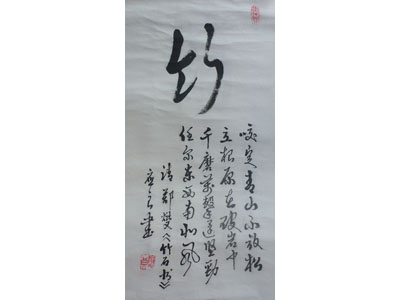 竹
咬定青山不放松
立根原在破岩中
千磨萬擊还坚勁
任尔东西南北风
清鄭燮《竹石》